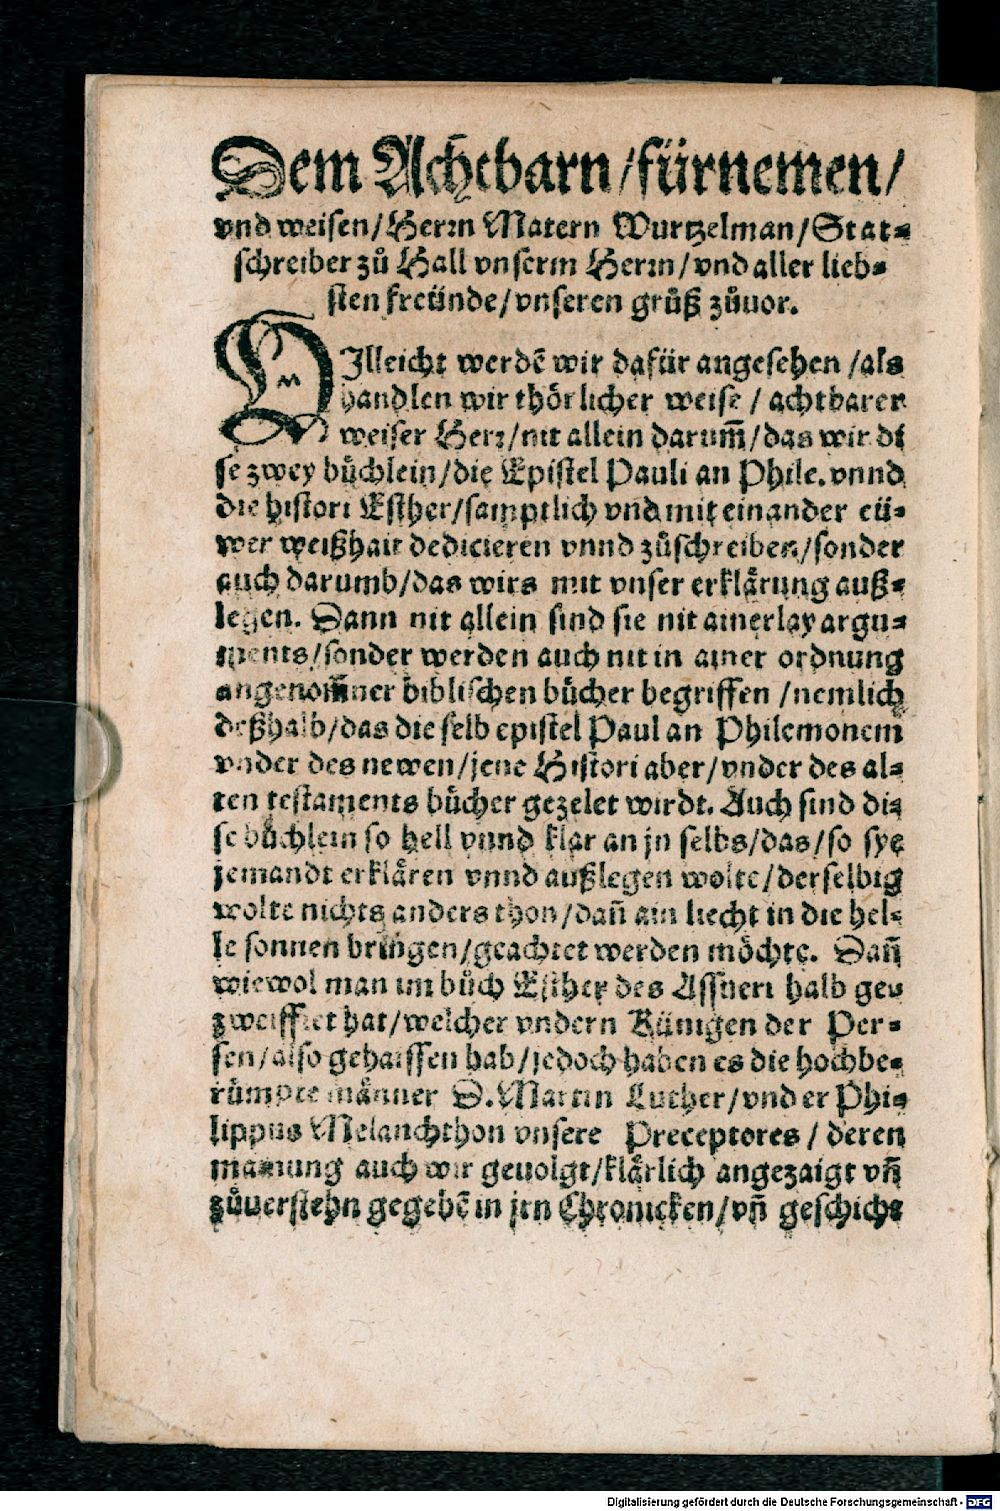 Dem Achtbarn /fürnemen/
vnd weisen/Herrn Matern Wurtzelman/Stat-
schreiber zů Hall vnserm Herrn/vnd aller lieb-
sten freünde/vnseren grůß zůuor.
VIlleicht werdē wir dafür angesehen /als
handlen wir thörlicher weise / achtbarer
weiser Herr/nit allein darum̄/das wir di
se zwey bůchlein/die Epistel Pauli an Phile. vnnd
die histori Esther/samptlich vnd mit einander eü-
wer weißhait dedicieren vnnd zůschreiben/sonder
auch darumb/das wirs mit vnser erklärung auß-
legen. Dann nit allein sind sie nit ainerlay argu-
ments/sonder werden auch nit in ainer ordnung
angenom̄ner biblischen bůcher begriffen /nemlich
deßhalb/das die selb epistel Paul an Philemonem
vnder des newen/jene Histori aber/vnder des al-
ten testaments bůcher gezelet wirdt. Auch sind di-
se bůchlein so hell vnnd klar an jn selbs/das/so sye
jemandt erklären vnnd außlegen wolte/derselbig
wolte nichts anders thon/dañ ain liecht in die hel-
le sonnen bringen/geachtet werden möchte. Dañ
wiewol man im bůch Esther des Assueri halb ge-
zweifflet hat/welcher vndern Künigen der Per-
sen/also gehaissen hab/jedoch haben es die hochbe-
rümpte männer D. Martin Luther/vnd er Phi-
lippus Melanchthon vnsere Preceptores / deren
mainung auch wir geuolgt/klärlich angezaigt vñ
zůuerstehn gegebē in jrn Chronicken/vñ geschicht
Digitalisierung gefördert durch die Deutsche Forschungsgemeinschaft - DFG